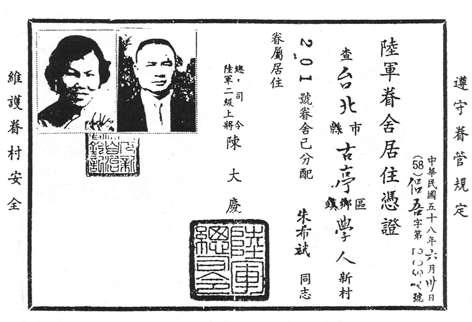 遵守眷管規定
中華民國五十八年六月卅日
(58)吾字第號
陸軍眷舍居住憑證
查台北市縣古亭區鄉鎮學人新村
201號眷舍已分配 朱希斌 同志
眷屬居住
總司令
陸軍二級上將 陳大慶
陸軍
總司令
維護眷村安全